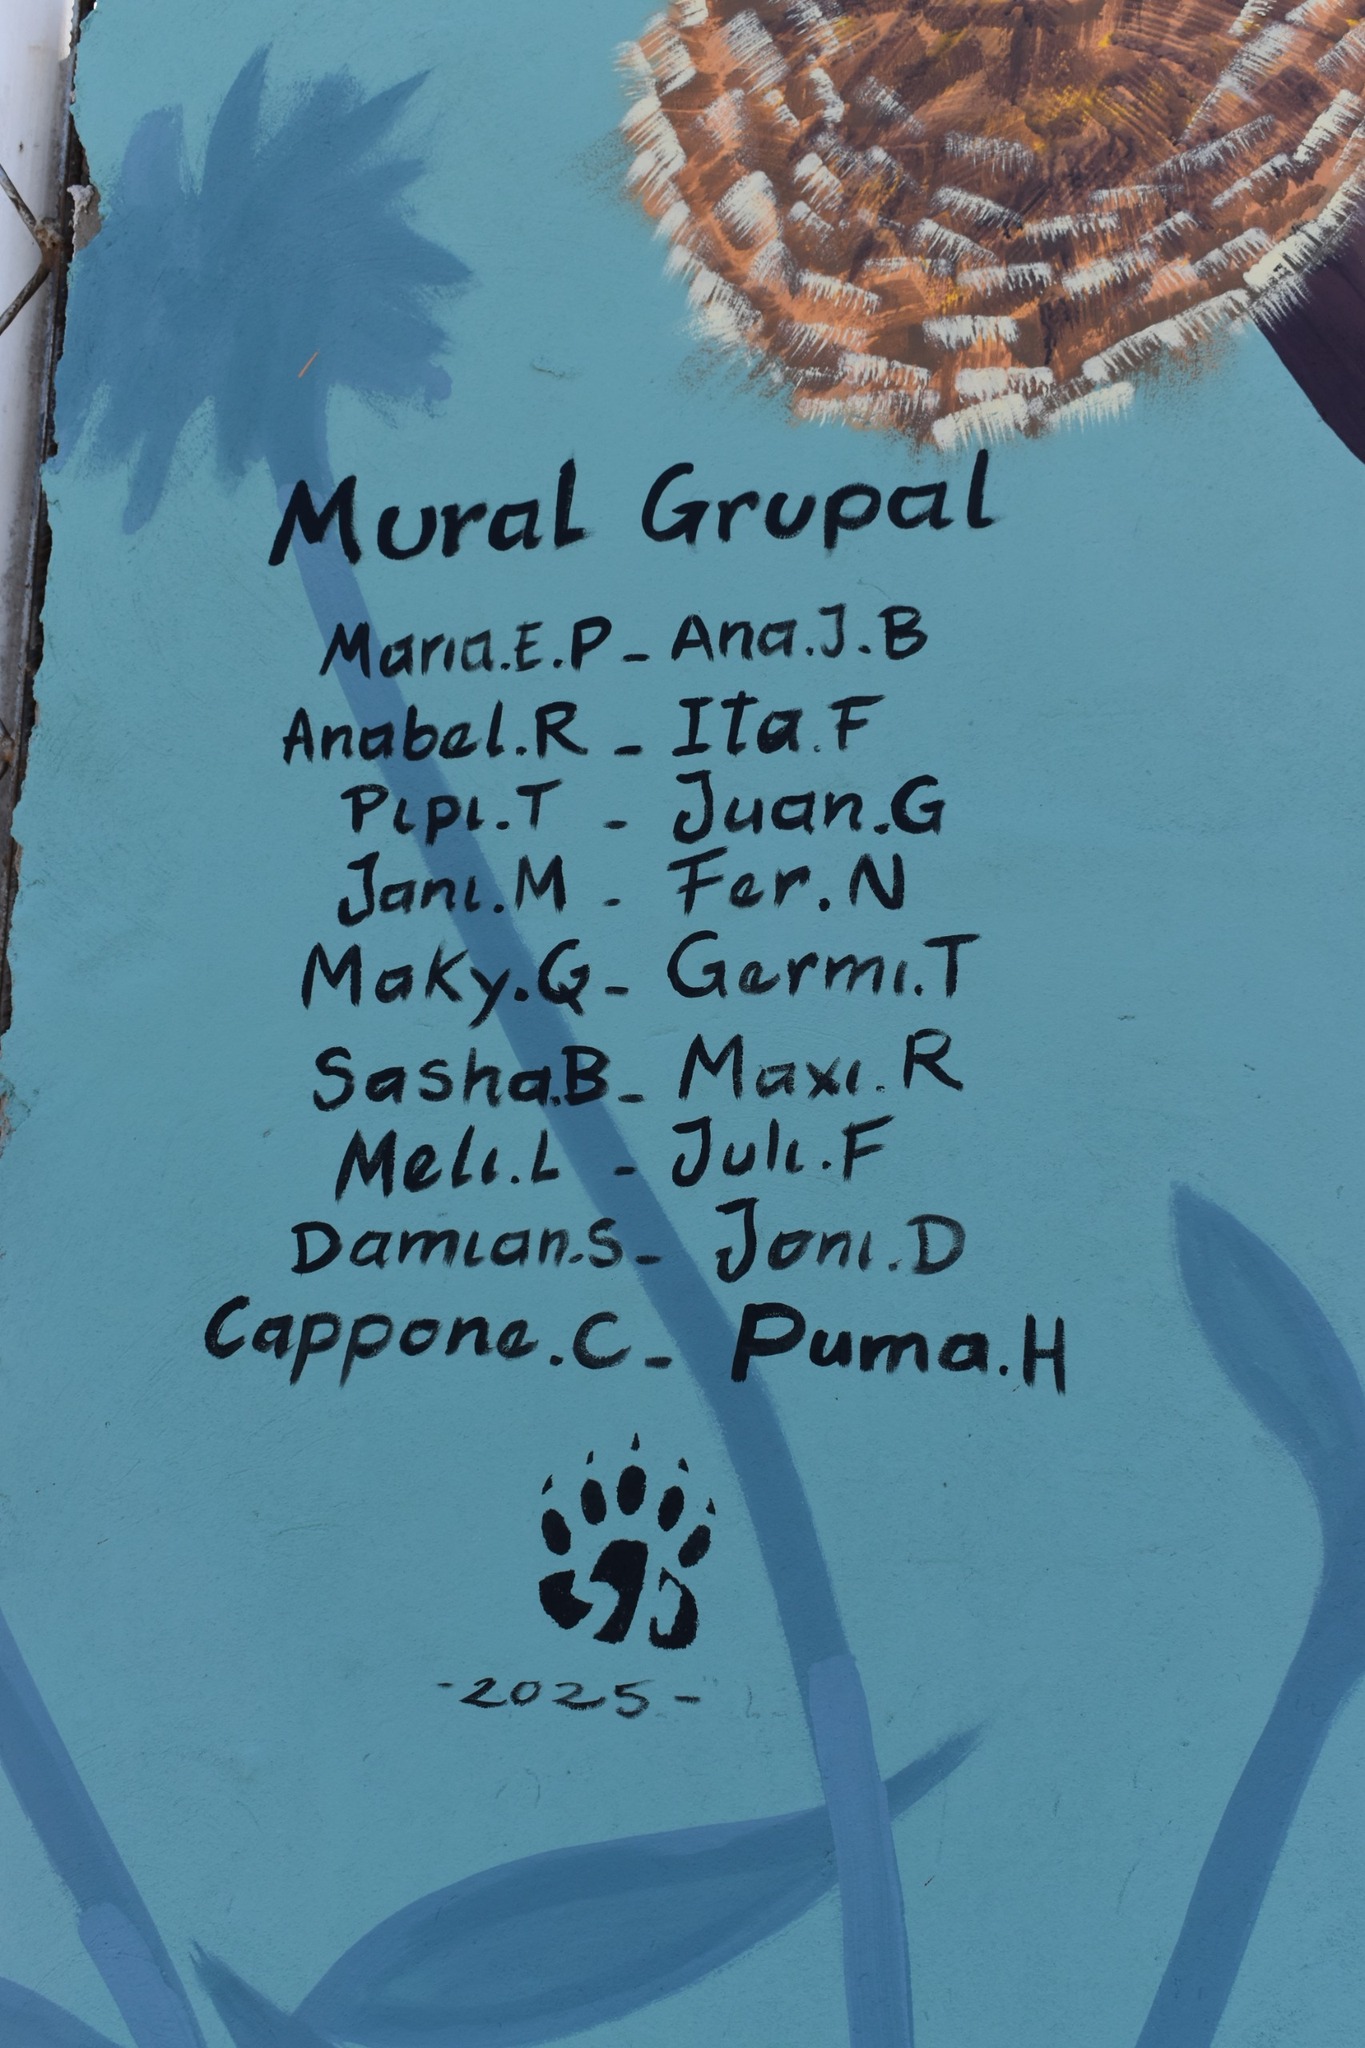 Mural Grupal
Maria.E.P - Ana.J.B
Anabel.R - Ita.F
Pipi.T - Juan.G
Jani.M - Fer.N
Maky.Q - Germi.T
Sasha.B - Maxi.R
Meli.L - Juli.F
Damian.S - Joni.D
Cappone.C - Puma.H
-2025-